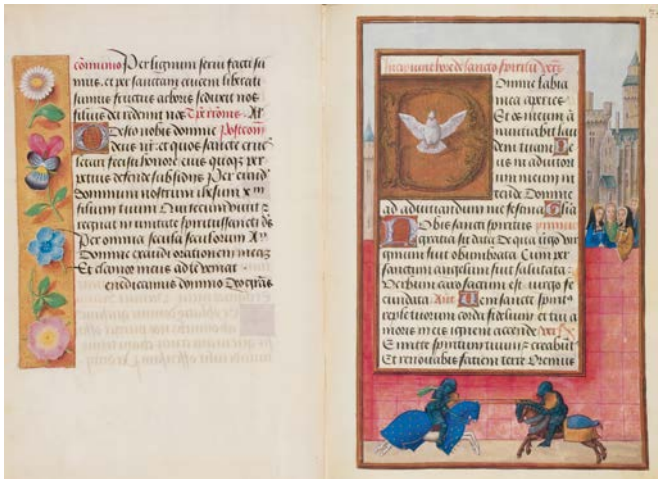 com̄unio Per lignum serui facti su
mus. et per sanctam crucem liberati
sumus fructus arboris seduxit nos
filius dei redemit nos T. p̄ersonis. All
Desto nobis domine postcom̄
deus nr̄. et quos sancte cruc̄
letari fecisti honore eius quoq̄ per
petuis defende subsidijs Per eund̄
dominum nostrum ihesum x̄m
filium tuum Qui tecum viuit ⁊
regnat in unitate spiritussancti d̄s
Per omnia secula seculorum
Domine exaudi orationem meā
Et clamor meus ad te veniat
Benedicamus domino Deo grās
Incipiunt hore de sancto spiritu
Domine labia
mea aperies
Et os meum ā
nuntiabit lau
dem tuam De
us in adiutori
um meum in
tende Domine
ad adiuuandum me festina Glīa
Nobis sancti spiritus
gratia sit data De qua virgo vir
ginum fuit obumbrata Cum per
sanctum angelum fuit salutata
Verbum caro factum est virgo fe
cundata. Ant̄ Veni sancte spirit⁹
reple tuorum corda fidelium et tui a
moris in eis ignem accende vers⁹
Emitte spiritum tuum ⁊ creabūt
Et renouabis faciem terre Oremus